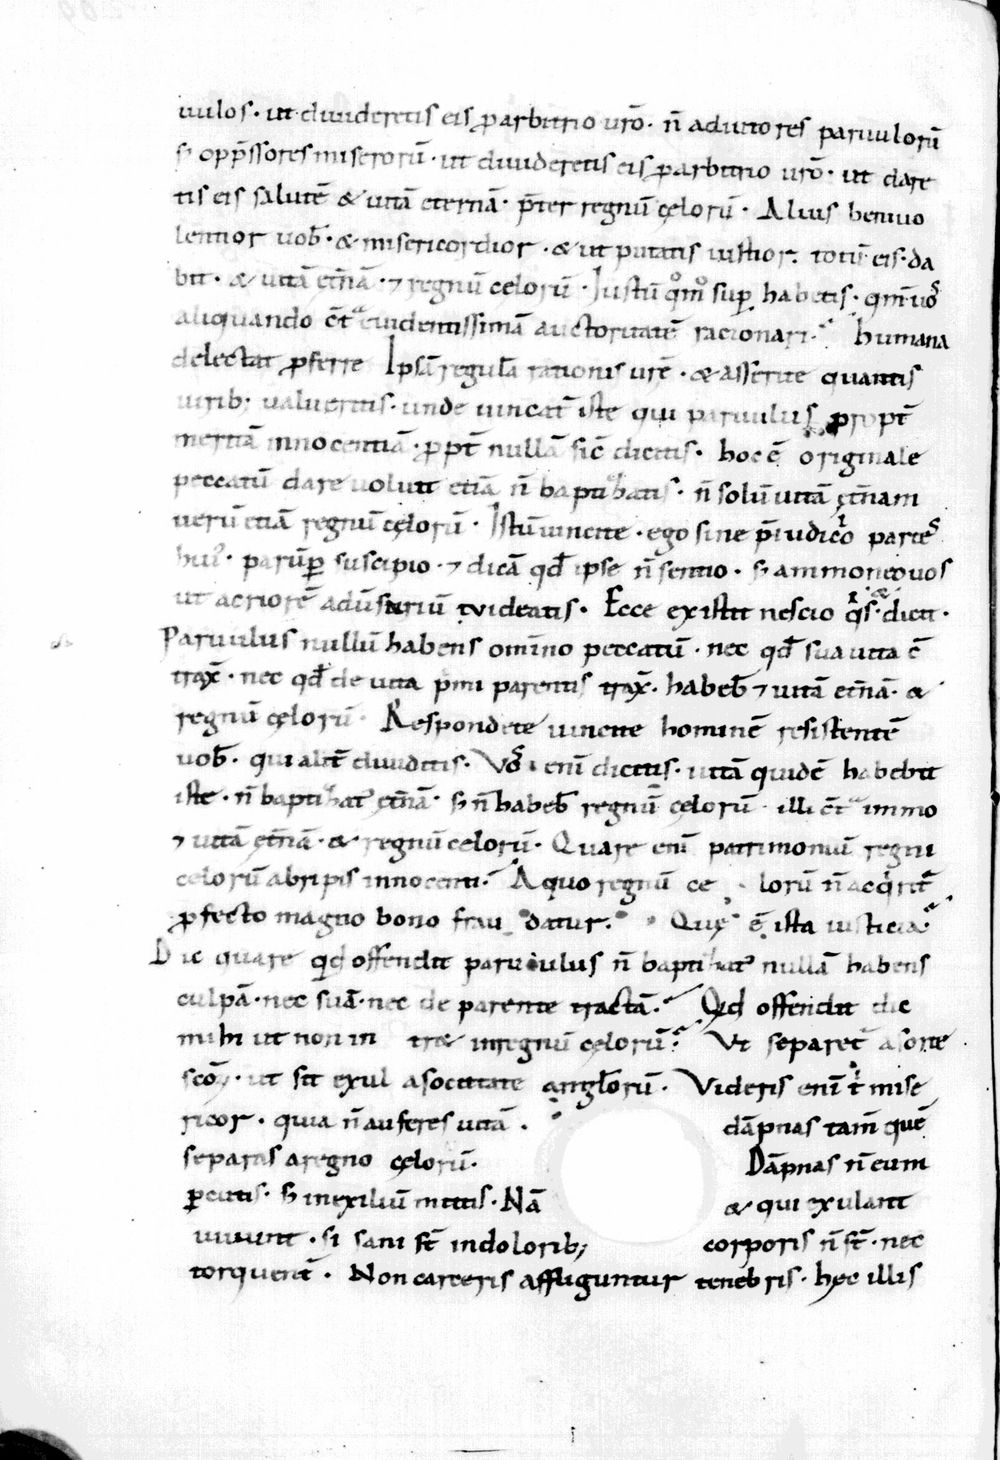 uulos · ut diuideretis eis ꝑ arbitrio ur̄o · n̄ adiutores paruulorū
s; opp̄ssores miserorū · ut diuideretis eis ꝑ arbitrio ur̄o · ut dare
tis eis salutē & uitā eternā · p̄ter regnū cęlorū · Alius beniuo
lentior uob̄ · & misericordior · & ut putatis iustior · totū eis · da
bit · & uitā et̄nā · ⁊ regnū celorū · Iustū qm̊ sup̱ habetis · qm̄ uos
aliquando c̄t euidentissimā auctoritatē racionari · humana
delectat ꝓferre Ipsā regulā rationis ur̄e · & asserite quantis
uirib; ualueritis · unde uincat̄ iste qui paruulus ꝓpt̄
meritā innocentiā · ꝓpt̄ nullā sic̄ dicitis · hoc ē originale
peccatū dare uoluit etiā n̄ baptizatis · n̄ solū uitā et̄nam
uerū etiā regnū cęlorū · Istū uincite · ego sine p̄iudicio partes
hui' · parūp̱ suscipio · ⁊ dicā qd̄ ipse n̄ sentio · s; ammoneo uos
ut acriorē adūsariū uideatis · Ecce existit nescio q̇s · & dicit ·
Paruulus nullū habens om̄ino peccatū · nec qd̄ sua uita c̄
trax̄ · nec qd̄ de uita p̄mi parentis trax̄ · habeb̄ ⁊ uitā et̄nā · &
regnū cęlorū · Respondete uincite hominē resistentē
uob̄ · qui alit̄ diuiditis · Vos enī dicitis · uitā quidē habebit
iste · n̄ baptizat' et̄nā · s; n̄ habeb̄ regnū cęlorū · ille c̄t immo
⁊ uitā et̄nā · & regnū celorū · Quare enī patrimoniū regni
celorū abripis innocenti · A quo regnū ce lorū n̄ acq̇rit̄
ꝓfecto magno bono frau datur · Quę ē ista iusticia ·
Dic quare qd̄ offendit paruulus n̄ baptizat' nullā habens
culpā · nec suā · nec de parente tractā · Qd̄ offendit dic
mihi ut non in tr& in regnū cęlorū · Vt separet̄ a sorte
scōꝝ · ut sit exul a societate angl̄orū · Videris enī t̊ mise
ricor · quia n̄ auferes uitā · dāpnas tam̄ quē
separas a regno cęlorū · Dāpnas n̄ eum
ꝑcutis · s; in exiliū mittis · Nā & qui exulant
uiuunt · si sani st̄ in dolorib; corporis n̄ st̄ · nec
torquent̄ · Non carceris affliguntur tenebris · hęc illis